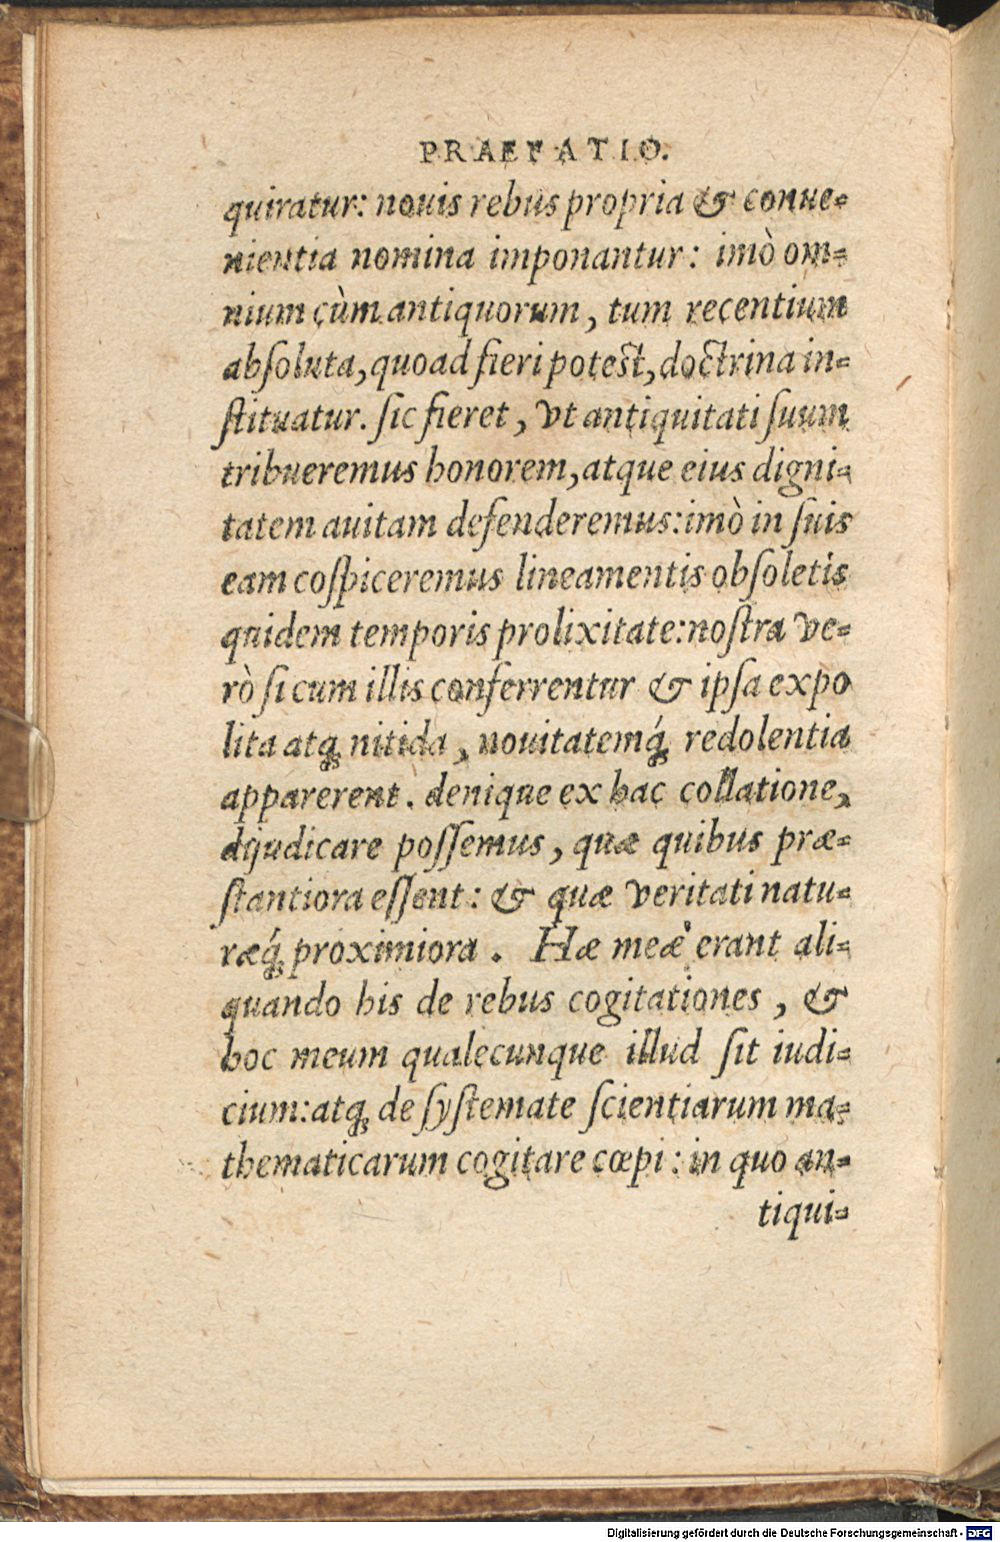 PRAEFATIO.
quiratur: nouis rebus propria & conue-
nientia nomina imponantur: imò om-
nium cùm antiquorum, tum recentium
absoluta, quoad fieri potest, doctrina in-
stituatur. sic fieret, vt antiquitati suum
tribueremus honorem, atque eius digni-
tatem auitam defenderemus: imò in suis
eam cospiceremus lineamentis obsoletis
quidem temporis prolixitate: nostra ve-
rò si cum illis conferrentur & ipsa expo
lita atq; nitida, nouitatemq́; redolentia
apparerent. denique ex hac collatione,
dijudicare possemus, quæ quibus præ-
stantiora essent: & quæ veritati natu-
ræq́; proximiora. Hæ meæ erant ali-
quando his de rebus cogitationes, &
hoc meum qualecunque illud sit iudi-
cium: atq; de systemate scientiarum ma-
thematicarum cogitare cœpi: in quo an-
tiqui-
Digitalisierung gefördert durch die Deutsche Forschungsgemeinschaft - DFG